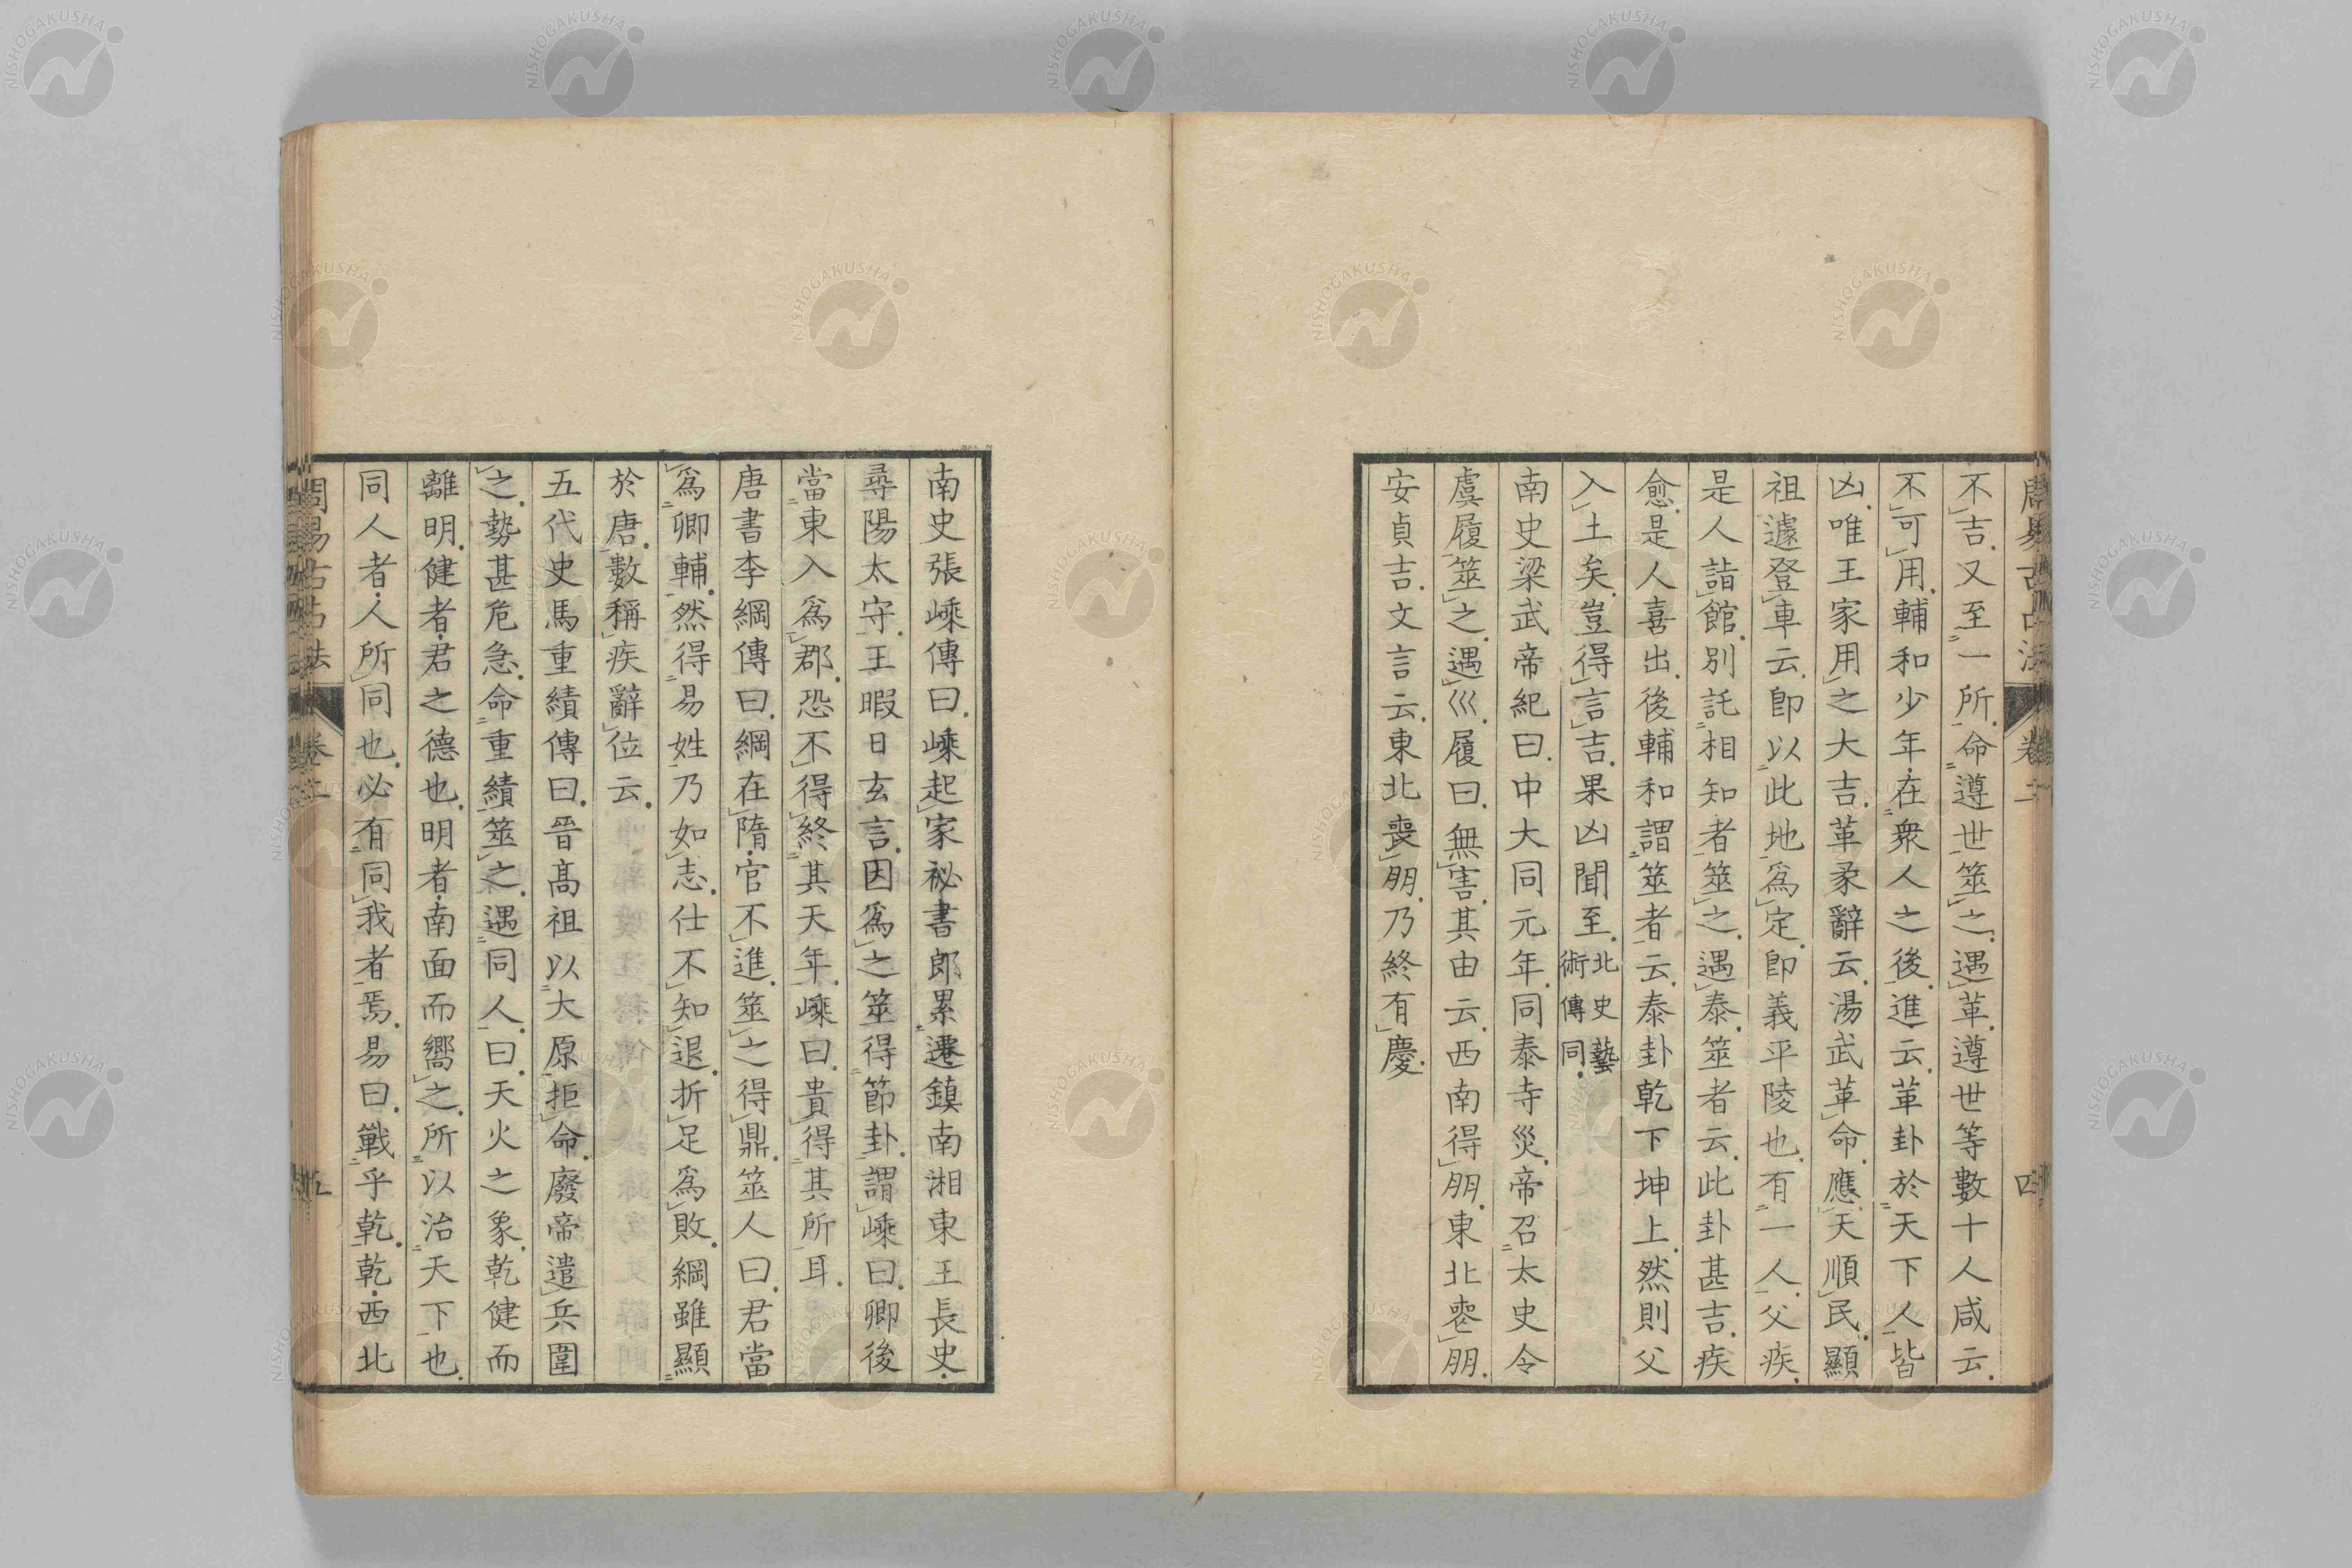 周易古占法 卷二 四
不吉又至一所命遵世筮之遇革遵世等數十人咸云
不可用輔和少年在衆人之後進云革卦於天下人皆
凶唯王家用之大吉革彖辭云湯武革命應天順民顯
祖遽登車云卽以此地爲定卽義平陵也有一人父疾
是人詣館別託相知者筮之遇泰筮者云此卦甚吉疾
愈是人喜出後輔和謂筮者云泰卦乾下坤上然則父
入土矣豈得言吉果凶聞至北史藝術傳同
南史梁武帝紀曰中大同元年同泰寺災帝召太史令
虞履筮之遇巛履曰無害其由云西南得朋東北喪朋
安貞吉文言云東北喪朋乃終有慶
南史張嵊傳曰嵊起家祕書郎累遷鎮南湘東王長史
尋陽太守王暇日玄言因爲之筮得節卦謂嵊曰卿後
當東入爲郡恐不得終其天年嵊曰貴得其所耳
唐書李綱傳曰綱在隋官不進筮之得鼎筮人曰君當
爲卿輔然得易姓乃如志仕不知退折足爲敗綱雖顯
於唐數稱疾辭位云
五代史馬重績傳曰晉高祖以大原拒命廢帝遣兵圍
之勢甚危急命重績筮之遇同人曰天火之象乾健而
離明健者君之德也明者南面而嚮之所以治天下也
同人者人所同也必有同我者焉易曰戰乎乾乾西北
周易古占法 卷二 五
NISHOGAKUSHA